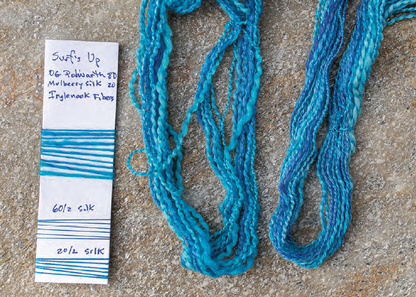 Surf's Up
OG Polwarth 80
Mulberry Silk 20
Inglenook Fibers
60/2 silk
20/2 silk